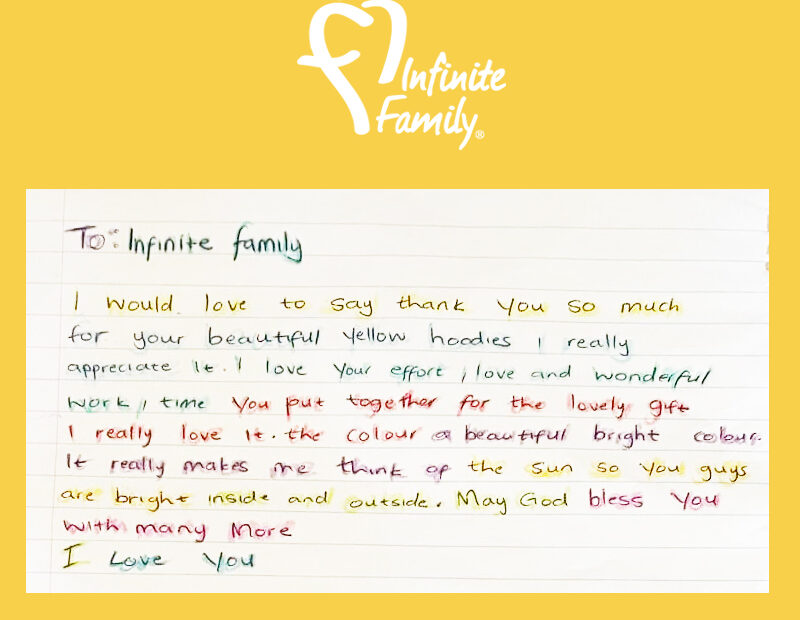 Infinite
Family®
To: Infinite family
I would love to say thank you so much
for your beautiful yellow hoodies I really
appreciate it. I love your effort, love and wonderful
work, time you put together for the lovely gift
I really love it. the colour a beautiful bright colour.
It really makes me think of the sun so you guys
are bright inside and outside. May God bless you
with many More
I Love You